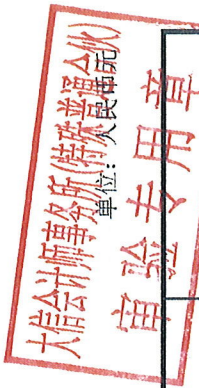 大信会计师事务所(特殊普通合伙)
单位：人民币元
审验专用章